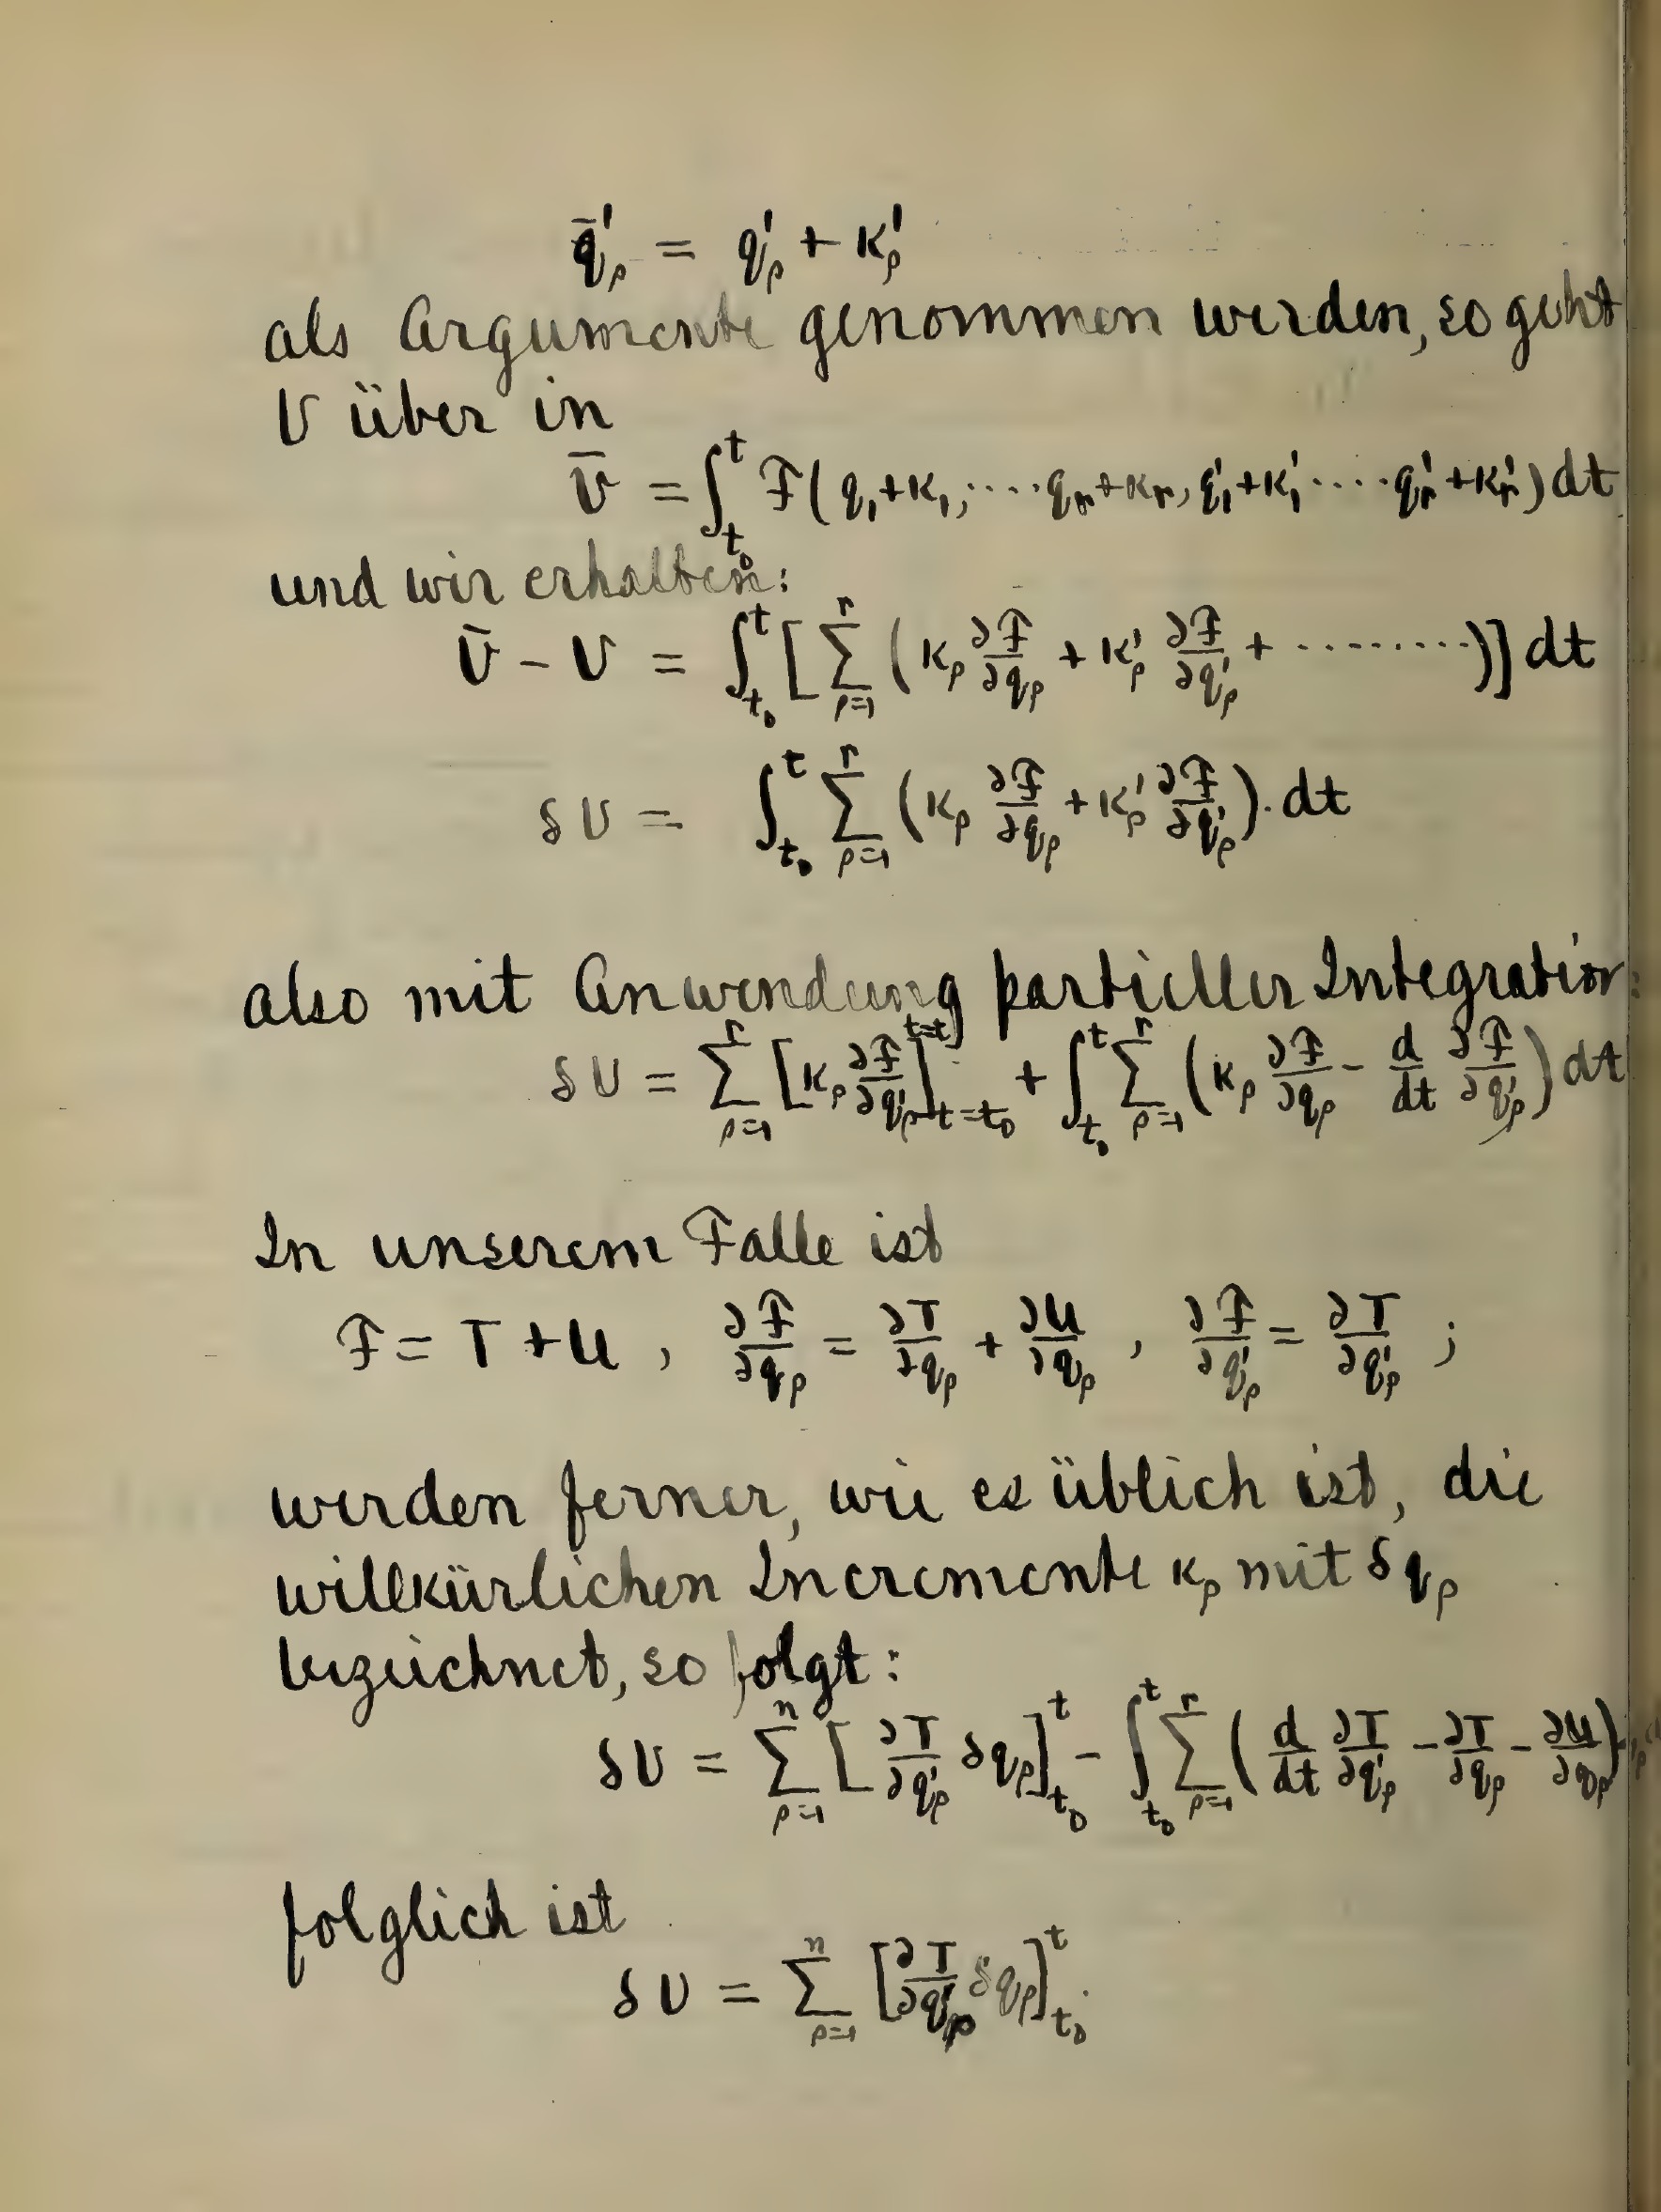 q̄'ρ = q'ρ + κ'ρ
als Argumente genommen werden, so geht
V über in
V̄ = ∫_{t₀}^{t} F(q₁+κ₁, ···· qᵣ+κᵣ, q'₁+κ'₁ ···· q'ᵣ+κ'ᵣ) dt
und wir erhalten:
V̄ − V = ∫_{t₀}^{t} [∑_{ρ=1}^{r} (κρ ∂F/∂qρ + κ'ρ ∂F/∂q'ρ + ·········)] dt
δV = ∫_{t₀}^{t} ∑_{ρ=1}^{r} (κρ ∂F/∂qρ + κ'ρ ∂F/∂q'ρ). dt
also mit Anwendung partieller Integration:
δV = ∑_{ρ=1}^{r} [κρ ∂F/∂q'ρ]_{t=t₀}^{t=t} + ∫_{t₀}^{t} ∑_{ρ=1}^{r} (κρ ∂F/∂qρ − d/dt ∂F/∂q'ρ) dt
In unserem Falle ist
F = T + U , ∂F/∂qρ = ∂T/∂qρ + ∂U/∂qρ , ∂F/∂q'ρ = ∂T/∂q'ρ ;
werden ferner, wie es üblich ist, die
willkürlichen Incremente κρ mit δqρ
bezeichnet, so folgt:
δV = ∑_{ρ=1}^{n} [∂T/∂q'ρ δqρ]_{t₀}^{t} − ∫_{t₀}^{t} ∑_{ρ=1}^{r} (d/dt ∂T/∂q'ρ − ∂T/∂qρ − ∂U/∂qρ)
folglich ist
δV = ∑_{ρ=1}^{n} [∂T/∂q'ρ δqρ]_{t₀}^{t}.